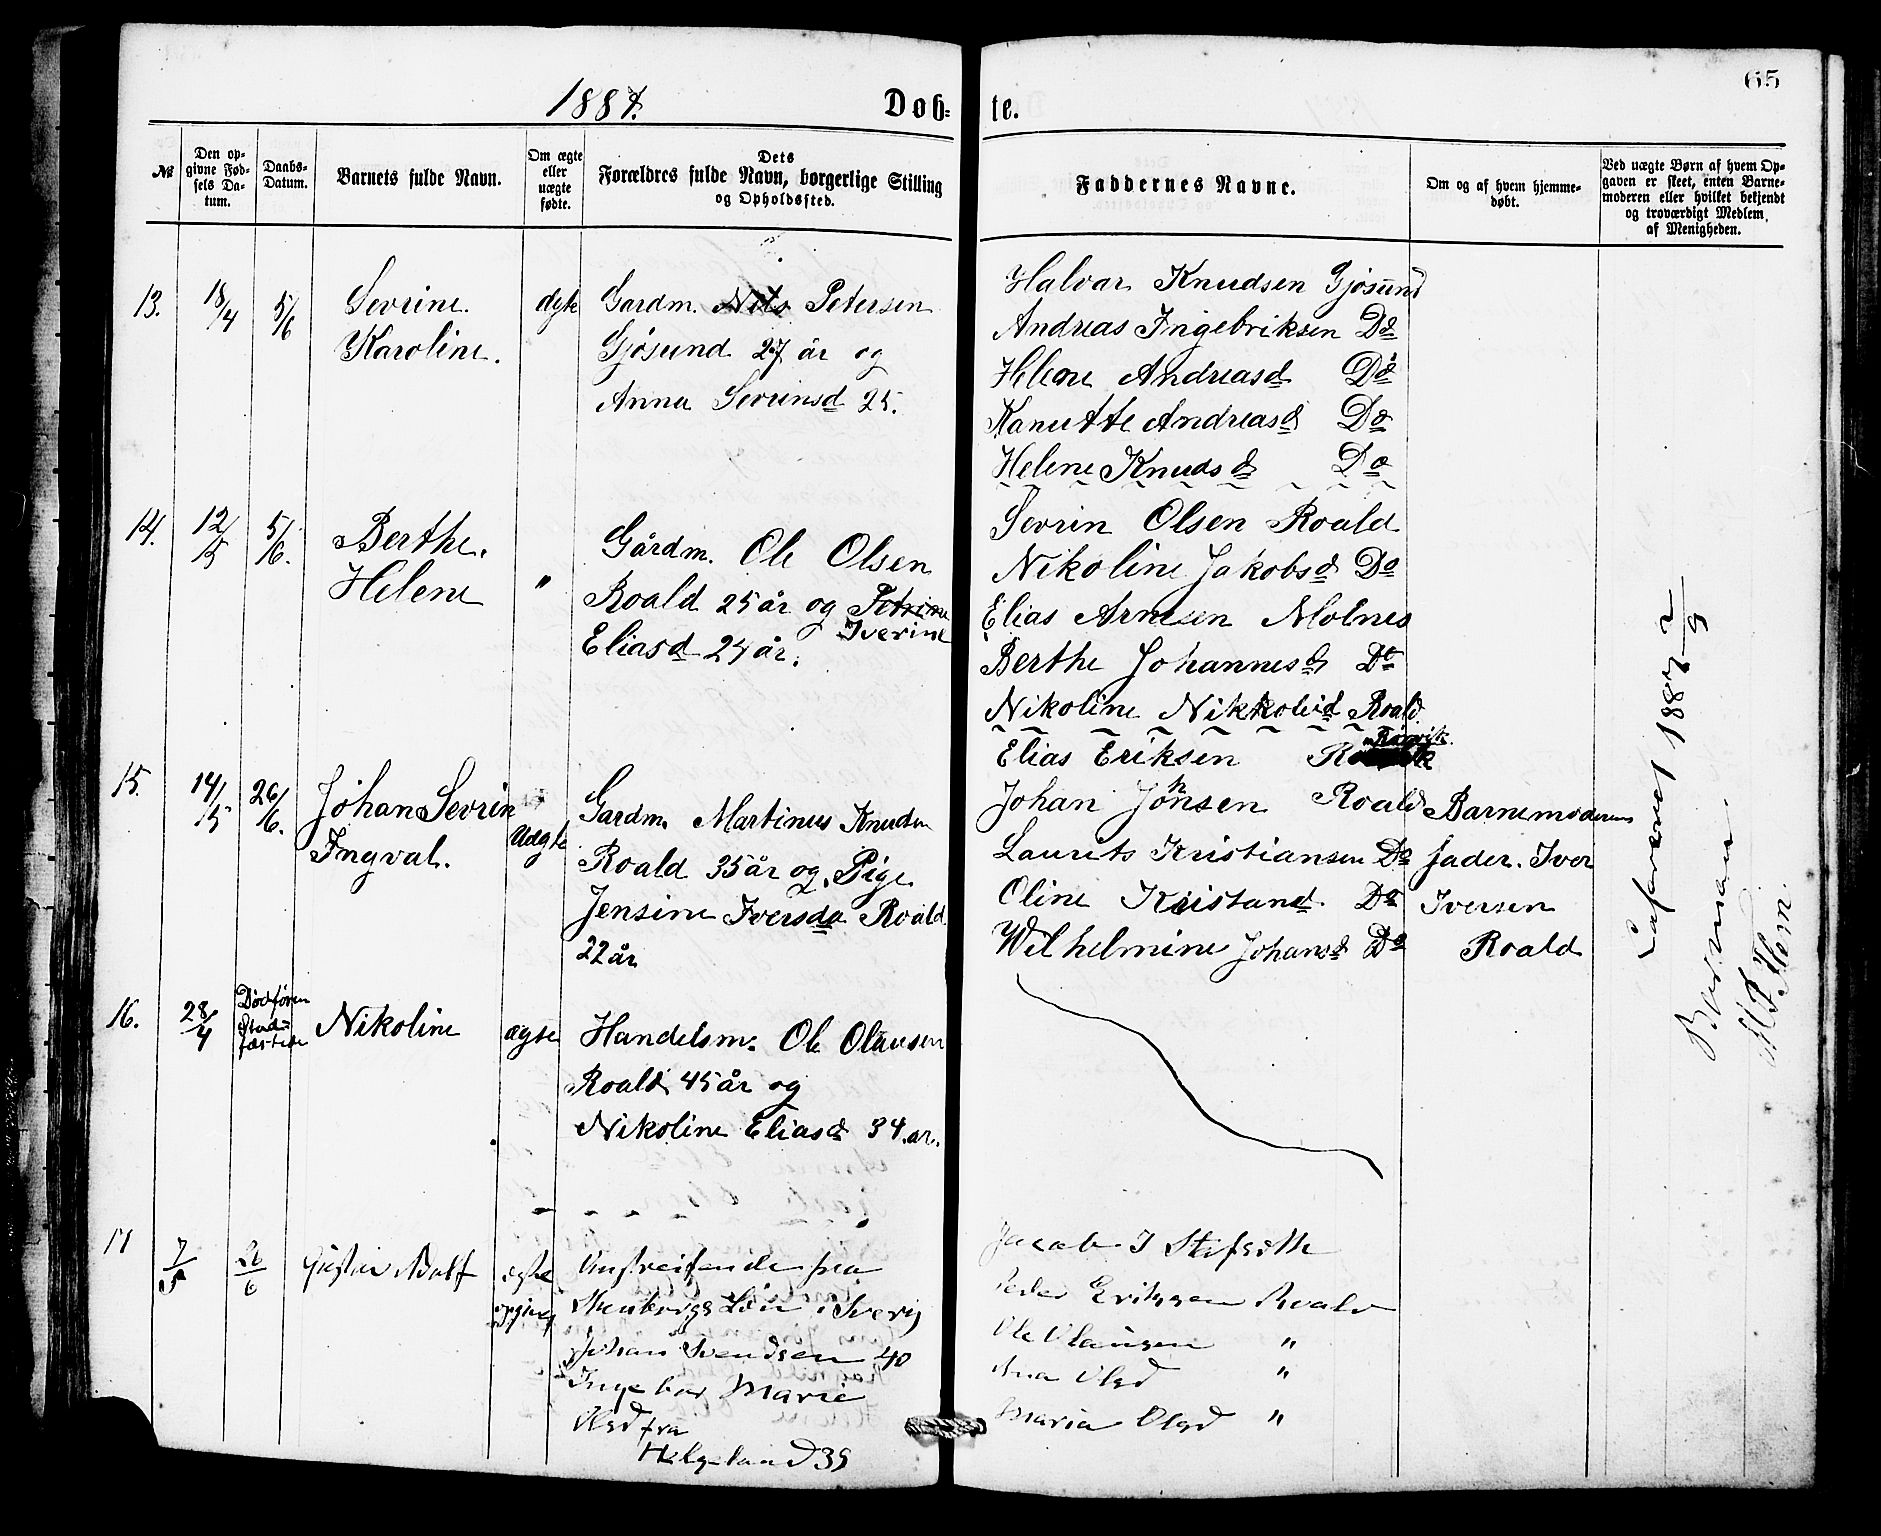 65
1884.
Døb- te.
№
Den opgivne Fødsels Datum.
Daabs-Datum.
Barnets fulde Navn.
Om ægte eller uægte fødte.
Dets Forældres fulde Navn, borgerlige Stilling og Opholdssted.
Faddernes Navne.
Om og af hvem hjemmedøbt.
Ved uægte Børn af hvem Opgaven er skeet, enten Barnemoderen eller hvilket bekjendt og troværdigt Medlem af Menigheden.
13. 18/4 5/6 Sevrine Karoline. ægte
Gardm. Nils Petersen
Gjøsund 27 år og
Anna Sevrinsd 25.
Halvar Knudsen Gjøsund
Andreas Ingebriksen Do
Helene Andreasd Do
Kanutte Andreasd Do
Helene Knudsd Do
14. 12/5 5/6. Berthe. Helene "
Gårdm. Ole Olsen
Roald 25 år og Petrine
Iverine
Eliasd 24 år.
Sevrin Olsen Roald
Nikoline Jakobsd Do
Elias Arnesen Molnes
Berthe Johannesd Do
Nikoline Nikkoleid Roald.
15. 14/5 26/6. Johan Sevrin Ingval. Uægte
Gardm. Martinus Knudsen
Roald 35 år og Pige
Jensine Iversda Roald
22 år
Elias Eriksen Rørvik.
Johan Johnsen Roald
Laurits Kristiansen Do
Oline Kristand. Do
Wilhelmine Johansd Do
Barnemoderens
fader. Iver
Iversen
Roald
16. 28/4 Dødføen Nikoline ægte
Handelsm. Ole Olausen
Roald 45 år og
Nikoline Eliasd 34 ar.
17 7/5 26/6 Gustav Adolf ægte opgivet
Omstreifende fra
i Sverig
Johan Svendsen 40
Ingebor Marie
Olsd fra
Helgeland 39
Jacob I
Peder Eriksen Roald
Ole Olausen "
Ana Olsd "
Maria Olsd "
Berman.